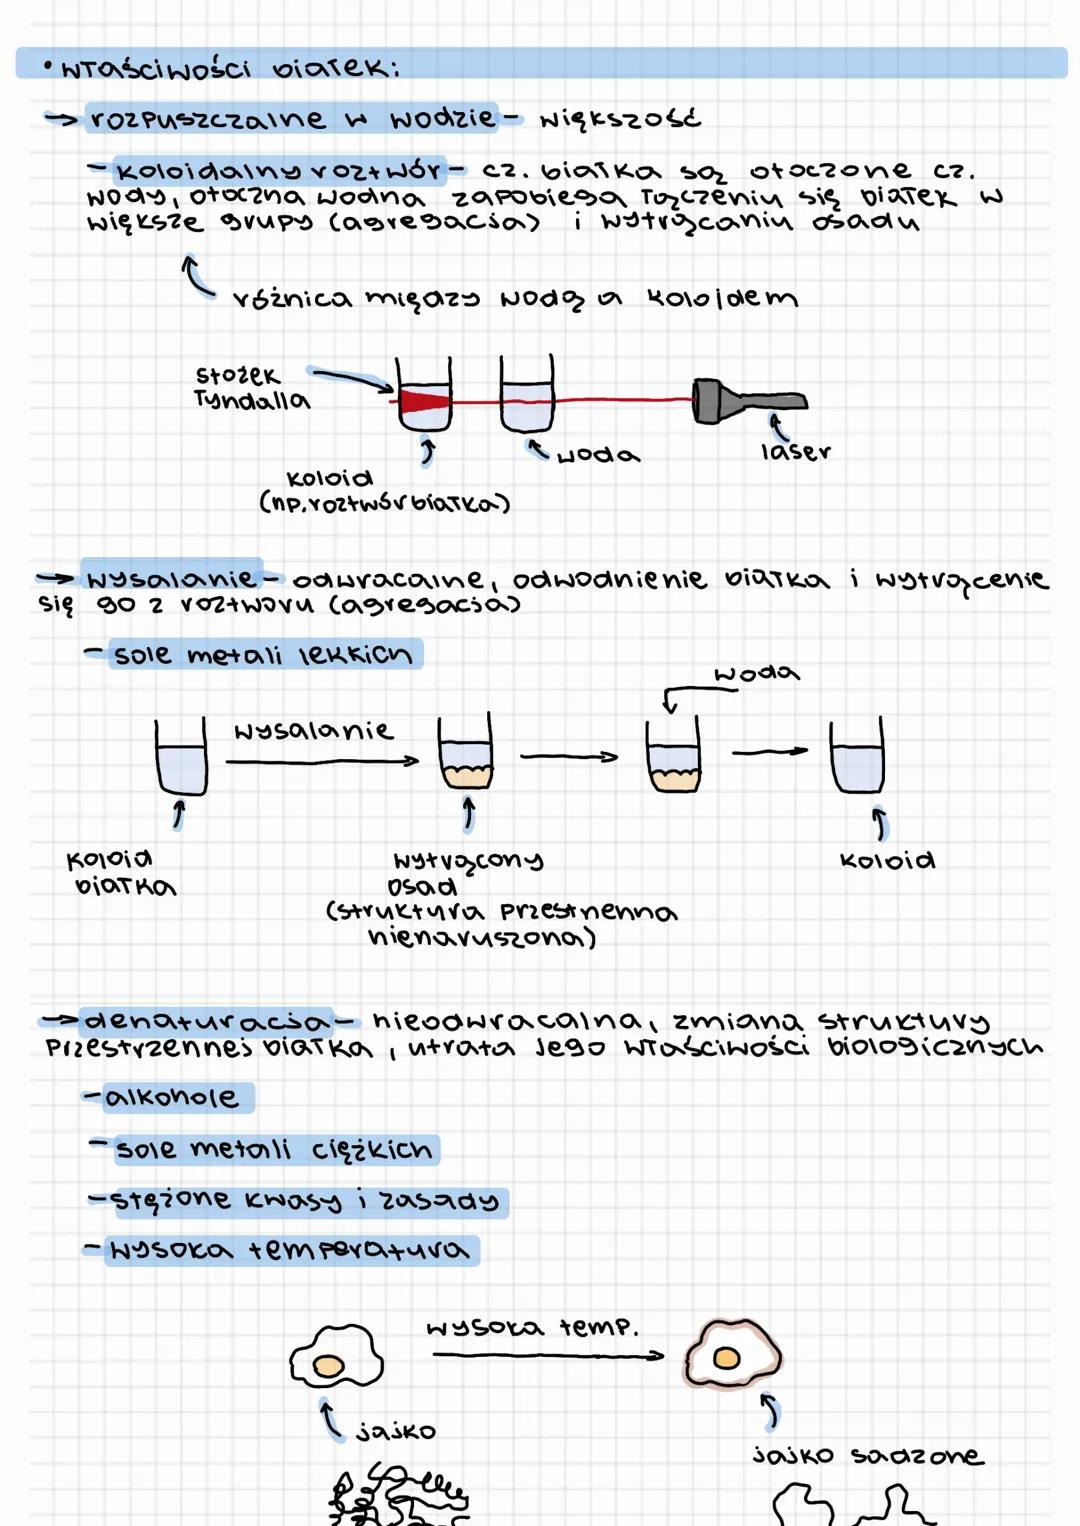 • właściwości białek:
→ rozpuszczalne w wodzie - większość
- koloidalny roztwór - cz. białka są otoczone cz.
wody, otoczna wodna zapobiega łączeniu się białek w
większe grupy (agregacja) i wytrącaniu osadu
różnica między wodą a koloidem
stożek
Tyndalla
woda
laser
koloid
(np. roztwór białka)
→ wysalanie - odwracalne, odwodnienie białka i wytrącenie
się go z roztworu (agregacja)
- sole metali lekkich
woda
wysalanie
koloid
białka
wytrącony
osad
(struktura przestrzenna
nienaruszona)
koloid
→ denaturacja - nieodwracalna, zmiana struktury
przestrzennej białka, utrata jego właściwości biologicznych
- alkohole
- sole metali ciężkich
- stężone kwasy i zasady
- wysoka temperatura
wysoka temp.
jajko
jajko sadzone